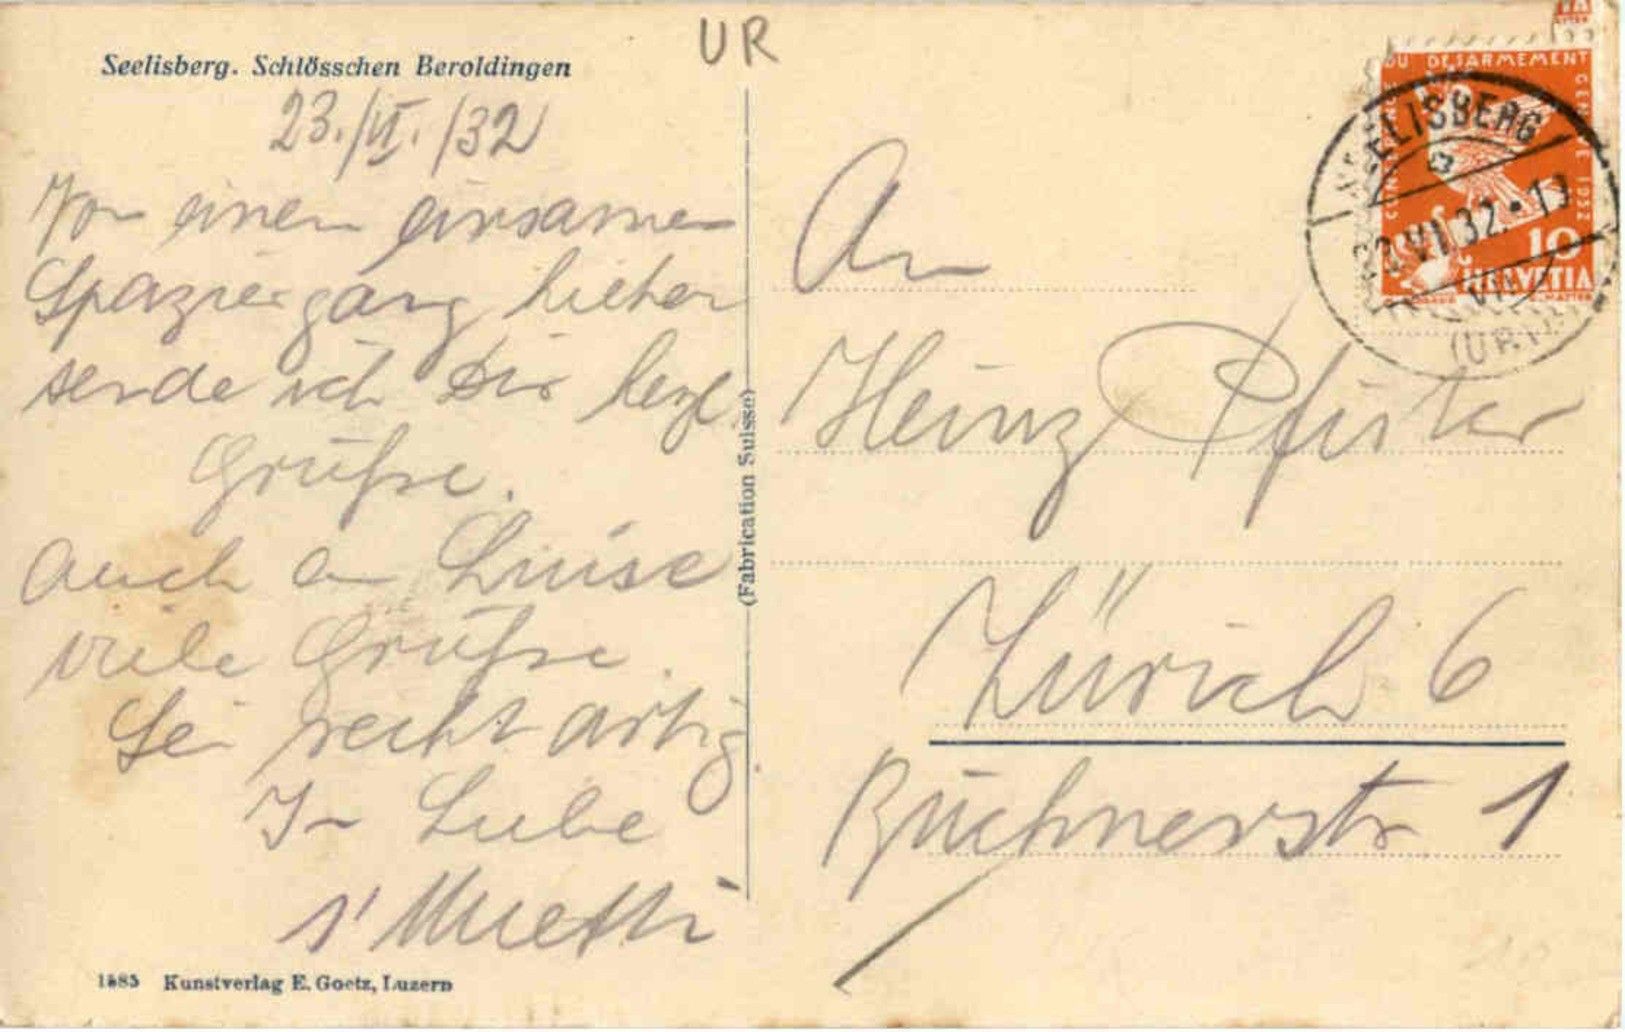 UR
Seelisberg. Schlösschen Beroldingen
23./VI./32
Von einem einsamen
Spaziergang hieher
sende ich Dir herzl.
Grüsse.
Auch an Luise
viele Grüsse.
Sei recht artig
In Liebe
s' Muetti
1585 Kunstverlag E. Goetz, Luzern
(Fabrication Suisse)
DU DESARMEMENT
GENEVE 1932
10
HELVETIA
SEELISBERG
23.VI.32.-19
(URI)
An
Heinz Pfister
Zürich 6
Büchnerstr 1